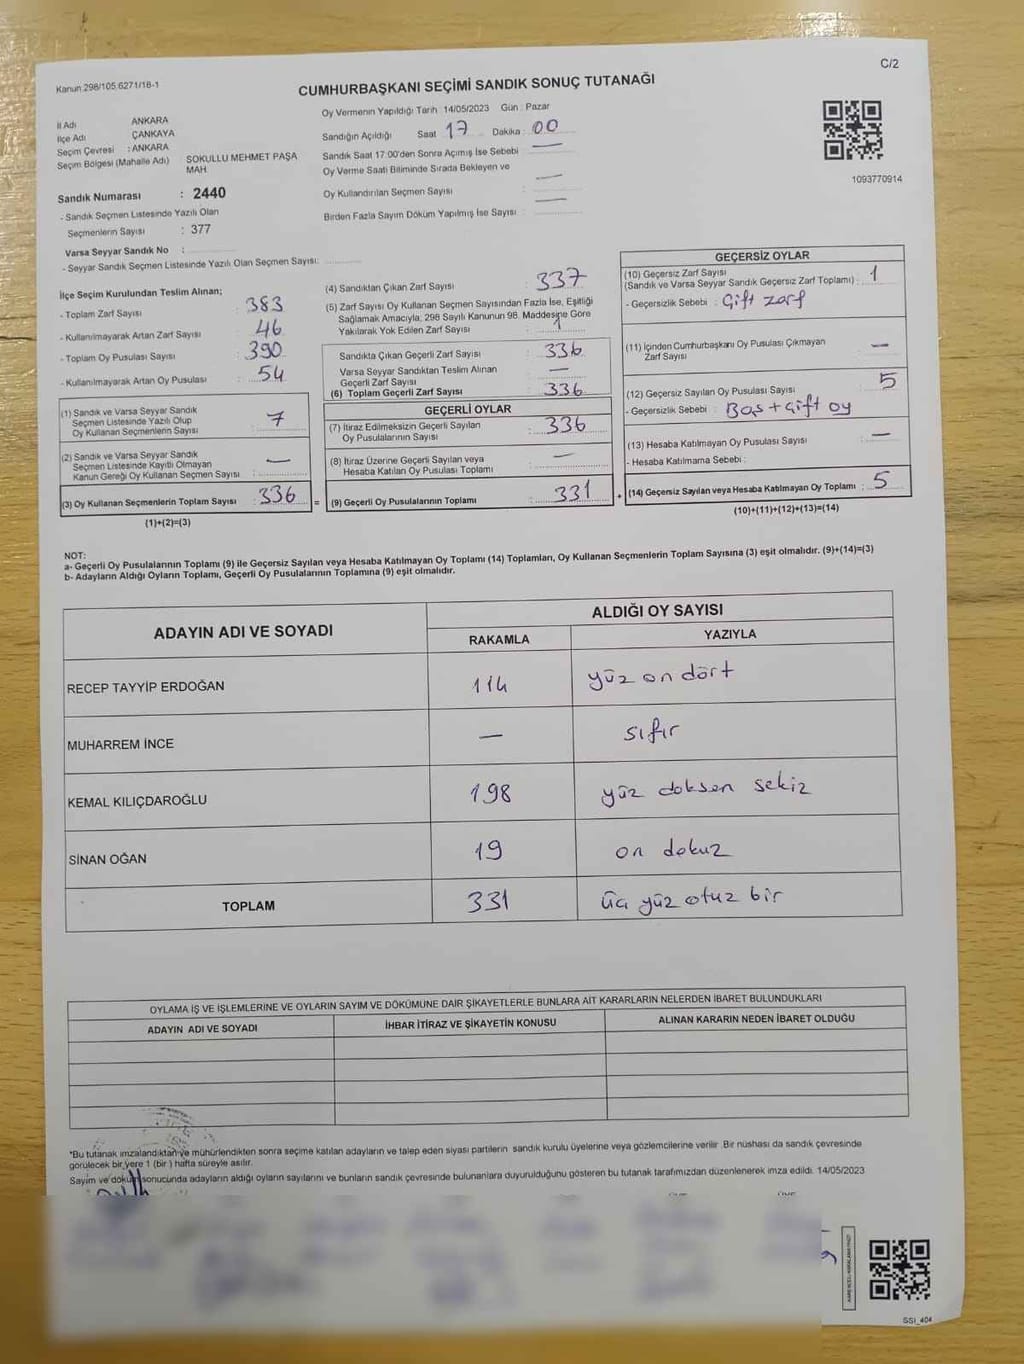 Kanun 298/105,6271/18-1
C/2
CUMHURBAŞKANI SEÇİMİ SANDIK SONUÇ TUTANAĞI
İl Adı ANKARA
İlçe Adı ÇANKAYA
Seçim Çevresi : ANKARA
Seçim Bölgesi (Mahalle Adı) SOKULLU MEHMET PAŞA MAH.
Sandık Numarası : 2440
- Sandık Seçmen Listesinde Yazılı Olan
Seçmenlerin Sayısı : 377
Varsa Seyyar Sandık No :
- Seyyar Sandık Seçmen Listesinde Yazılı Olan Seçmen Sayısı:
Oy Vermenin Yapıldığı Tarih : 14/05/2023 Gün : Pazar
Sandığın Açıldığı Saat 17 Dakika : 00
Sandık Saat 17:00'den Sonra Açımış İse Sebebi —
Oy Verme Saati Bitiminde Sırada Bekleyen ve
Oy Kullandırılan Seçmen Sayısı : —
Birden Fazla Sayım Döküm Yapılmış İse Sayısı : —
1093770914
İlçe Seçim Kurulundan Teslim Alınan;
- Toplam Zarf Sayısı : 383
- Kullanılmayarak Artan Zarf Sayısı : 46
- Toplam Oy Pusulası Sayısı : 390
- Kullanılmayarak Artan Oy Pusulası : 54
(1) Sandık ve Varsa Seyyar Sandık
Seçmen Listesinde Yazılı Olup
Oy Kullanan Seçmenlerin Sayısı : 7
(2) Sandık ve Varsa Seyyar Sandık
Seçmen Listesinde Kayıtlı Olmayan
Kanun Gereği Oy Kullanan Seçmen Sayısı : —
(3) Oy Kullanan Seçmenlerin Toplam Sayısı : 336
(1)+(2)=(3)
=
(4) Sandıktan Çıkan Zarf Sayısı : 337
(5) Zarf Sayısı Oy Kullanan Seçmen Sayısından Fazla İse, Eşitliği
Sağlamak Amacıyla; 298 Sayılı Kanunun 98. Maddesine Göre
Yakılarak Yok Edilen Zarf Sayısı : 1
Sandıkta Çıkan Geçerli Zarf Sayısı : 336
Varsa Seyyar Sandıktan Teslim Alınan
Geçerli Zarf Sayısı : —
(6) Toplam Geçerli Zarf Sayısı : 336
GEÇERLİ OYLAR
(7) İtiraz Edilmeksizin Geçerli Sayılan
Oy Pusulalarının Sayısı : 336
(8) İtiraz Üzerine Geçerli Sayılan veya
Hesaba Katılan Oy Pusulası Toplamı : —
(9) Geçerli Oy Pusulalarının Toplamı : 331
+
GEÇERSİZ OYLAR
(10) Geçersiz Zarf Sayısı
(Sandık ve Varsa Seyyar Sandık Geçersiz Zarf Toplamı) : 1
- Geçersizlik Sebebi : Çift zarf
(11) İçinden Cumhurbaşkanı Oy Pusulası Çıkmayan
Zarf Sayısı : —
(12) Geçersiz Sayılan Oy Pusulası Sayısı : 5
- Geçersizlik Sebebi : Boş + çift oy
(13) Hesaba Katılmayan Oy Pusulası Sayısı : —
- Hesaba Katılmama Sebebi :
(14) Geçersiz Sayılan veya Hesaba Katılmayan Oy Toplamı : 5
(10)+(11)+(12)+(13)=(14)
NOT:
a- Geçerli Oy Pusulalarının Toplamı (9) ile Geçersiz Sayılan veya Hesaba Katılmayan Oy Toplamı (14) Toplamları, Oy Kullanan Seçmenlerin Toplam Sayısına (3) eşit olmalıdır. (9)+(14)=(3)
b- Adayların Aldığı Oyların Toplamı, Geçerli Oy Pusulalarının Toplamına (9) eşit olmalıdır.
ADAYIN ADI VE SOYADI ALDIĞI OY SAYISI
RAKAMLA YAZIYLA
RECEP TAYYİP ERDOĞAN 114 yüz on dört
MUHARREM İNCE — sıfır
KEMAL KILIÇDAROĞLU 198 yüz doksen sekiz
SİNAN OĞAN 19 on dokuz
TOPLAM 331 üç yüz otuz bir
OYLAMA İŞ VE İŞLEMLERİNE VE OYLARIN SAYIM VE DÖKÜMÜNE DAİR ŞİKAYETLERLE BUNLARA AİT KARARLARIN NELERDEN İBARET BULUNDUKLARI
ADAYIN ADI VE SOYADI İHBAR İTİRAZ VE ŞİKAYETİN KONUSU ALINAN KARARIN NEDEN İBARET OLDUĞU
*Bu tutanak imzalandıktan ve mühürlendikten sonra seçime katılan adayların ve talep eden siyasi partilerin sandık kurulu üyelerine veya gözlemcilerine verilir. Bir nüshası da sandık çevresinde
görülecek bir yere 1 (bir) hafta süreyle asılır.
Sayım ve döküm sonucunda adayların aldığı oyların sayılarını ve bunların sandık çevresinde bulunanlara duyurulduğunu gösteren bu tutanak tarafımızdan düzenlenerek imza edildi. 14/05/2023
SSI_404